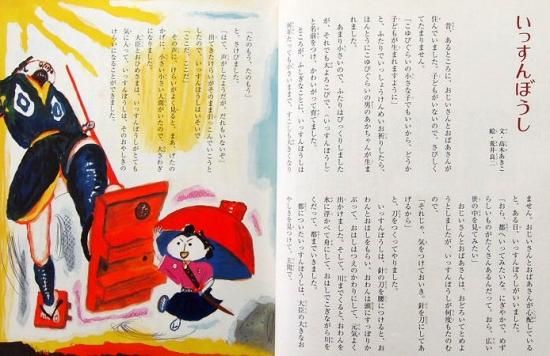 いっすんぼうし
文・高木あきこ
絵・荒井良二
昔、あるところに、おじいさんとおばあさんが
住んでいました。子どもがいないので、さびしく
てたまりません。
「こゆびぐらいの小さな子でもいいから、どうか
子どもが生まれますように」
と、ふたりでいっしょうけんめいお祈りしたら、
ほんとうにこゆびぐらいの男のあかちゃんが生ま
れました。
あまり小さいので、ふたりはびっくりしました
が、それでも大よろこびで、〈いっすんぼうし〉
と名前をつけ、かわいがって育てました。
ところが、ふしぎなことに、いっすんぼうしは
何年たっても小さいままで、すこしも大きくなり
ません。おじいさんとおばあさんが心配している
と、ある日、いっすんぼうしがいいました。
「おら、都へいってみたいな。にぎやかで、めず
らしいものがたくさんあるんだって。おら、広い
世の中を見てみたい」
おじいさんとおばあさんは、おどろいてとめよ
うとしましたが、いっすんぼうしが何度もたのむ
ので、
「それじゃ、気をつけておいき。針を刀にしてあ
げるから」
と、刀をつくってやりました。
いっすんぼうしは、針の刀を腰につけると、お
わんとおはしをもらい、おわんは頭にすっぽりか
ぶって、おはしはつえのかわりにして、元気よく
出かけました。そして、川までくると、おわんを
水に浮かべて舟にして、おはしでこぎながら川を
くだって、都まできました。
都についたいっすんぼうしは、大臣の大きなお
やしきを見つけて、玄関で、
「たのもう、たのもう」
と、さけびました。
「はて、声がしたようだが、だれもいないぞ」
出てきたけらいがそのままおくへひっこもうと
したので、いっすんぼうしはいそいで、
「ここだ、ここだ」
その声に、けらいがよく見ると、まあ、げたの
かげに、小さい小さい人間がいたので、大さわぎ
になりました。
大臣とおひめさまは、いっすんぼうしがとても
気に入って、いっすんぼうしは、そのおやしきの
けらいになることができました。